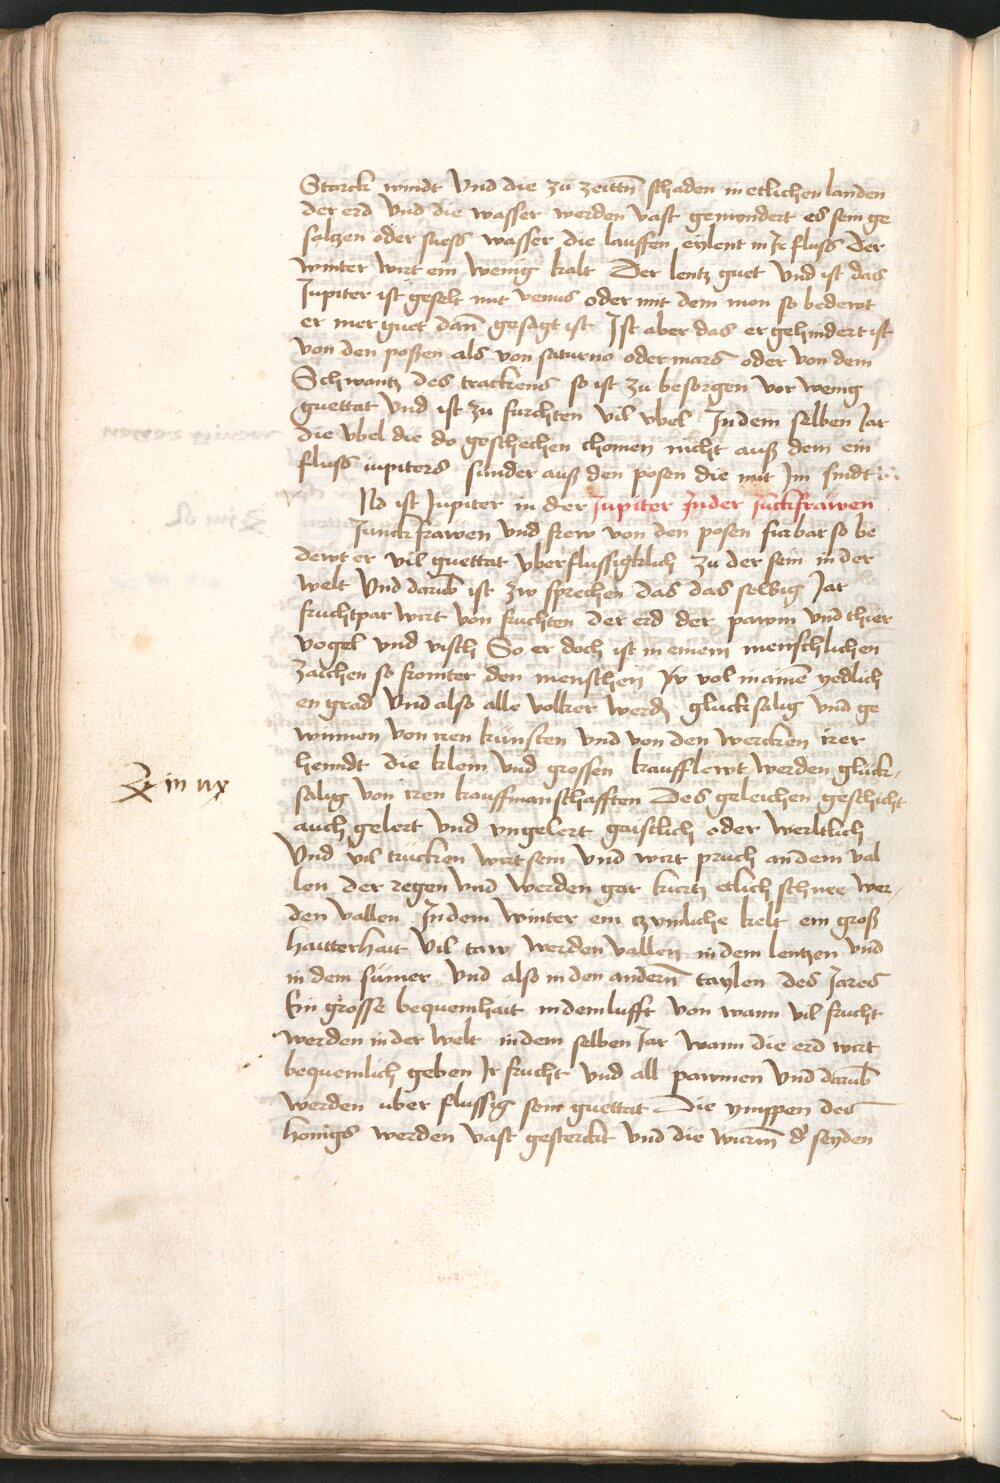 Starck windt Vnd die zu zeittn̄ schaden in etlichen landen
der erd Vnd die wasser werden vast gemindert es sein ge
saltzen oder suess wasser die lauffen eylent in Jr fluss Der
winter wirt ein wenig kalt Der lentz guet Vnd ist das
Jupiter ist geselt mit venus oder mit dem mon so bedewt
er mer guet dan̄ gesagt ist Jst aber das er gehindert ist
von den possen als von saturno oder mars oder von dem
Schwantz des trackens so ist zu besorgen vor wenig
guettat Vnd ist zu furchten vil vbel Jn dem selben Jar
die vbel die do geschechen chomen nicht auß dem ein
fluss iupiters sunder auß den posen die mit Jm sindt
No ist Jupiter in der Jupiter Jn der Jūckfrawen
Junckfrawen Vnd frew von den posen so be
dewt er vil guettat vberflussigklich zu der sein in der
welt Vnd darūb ist zw sprechen das das selbig Jar
fruchtpar wirt von fruchten der erd der pawm vnd thier
vogel vnd visch So er doch ist in einem menschlichen
zaichen so fromter den menschen yedlich
en grad Vnd also alle volker werdn̄ glucksalig vnd ge
winnen von iren kunsten vnd von den wercken irer
henndt die klein vnd grossen kaufflewt werden gluck
salig von iren kauffmanschafften Des geleichen geschicht
♃ in ♍
auch gelert vnd vngelert gaistlich oder werltlich
Vnd vil trucken wirt sein vnd wirt pruch an dem val
len der regen vnd werden gar kurtz etlich schnee wer
den vallen Jn dem winter ein zymliche kelt ein groß
haitterhait Vil taw werden vallen in dem lentzen vnd
in dem sum̄er Vnd also in den andern̄ taylen des Jares
Ein grosse bequemhait in dem lufft von wann vil frucht
werden in der welt in dem selben Jar wann die erd wirt
bequemlich geben Jr frucht vnd all pawmen vnd darūb
werden vber flussig sein guettat Die ymppen des
honigs werden vast gesterckt vnd die wurm̄ d' seyden